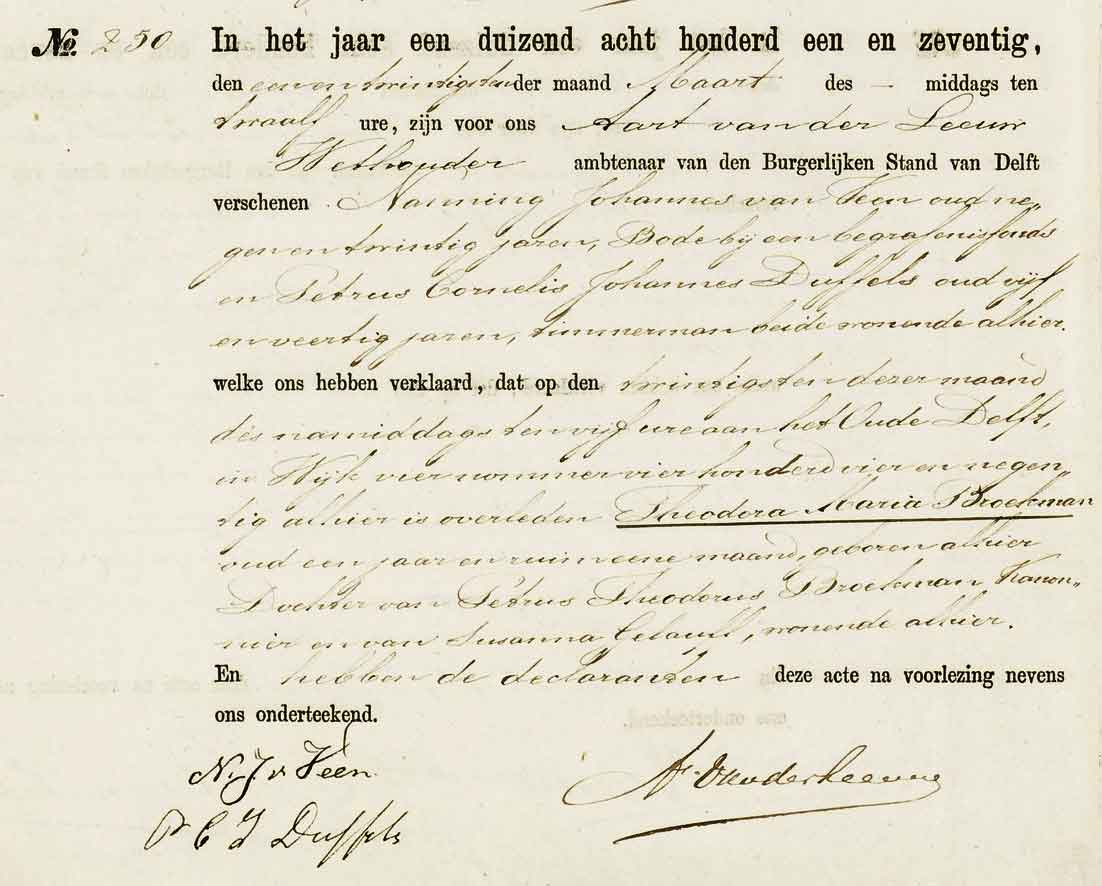 No. 250 In het jaar een duizend acht honderd een en zeventig,
den een en twintigsten der maand Maart des — middags ten
twaalf ure, zijn voor ons Aart van der Leeuw
Wethouder ambtenaar van den Burgerlijken Stand van Delft
verschenen Nanning Johannes van Veen oud ne„
gen en twintig jaren, Bode bij een begrafenisfonds
en Petrus Cornelis Johannes Duffels oud vijf
en veertig jaren, timmerman beide wonende alhier.
welke ons hebben verklaard, dat op den twintigsten dezer maand
des namiddags ten vijf ure aan het Oude Delft,
in Wijk vier nommer vier honderd vier en negen„
tig alhier is overleden Theodora Maria Broekman
oud een jaar en ruim eene maand, geboren alhier
Dochter van Petrus Theodorus Broekman, Kanon„
nier en van Susanna, wonende alhier.
En hebben de declaranten deze acte na voorlezing nevens
ons onderteekend.
N. J. v. Veen
A. van der Leeuw
P C J Duffels